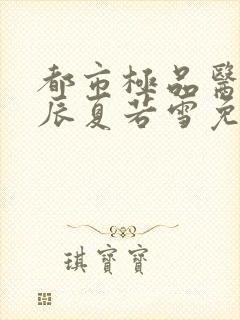 都市極品醫
辰夏若雪免
琪寶寶